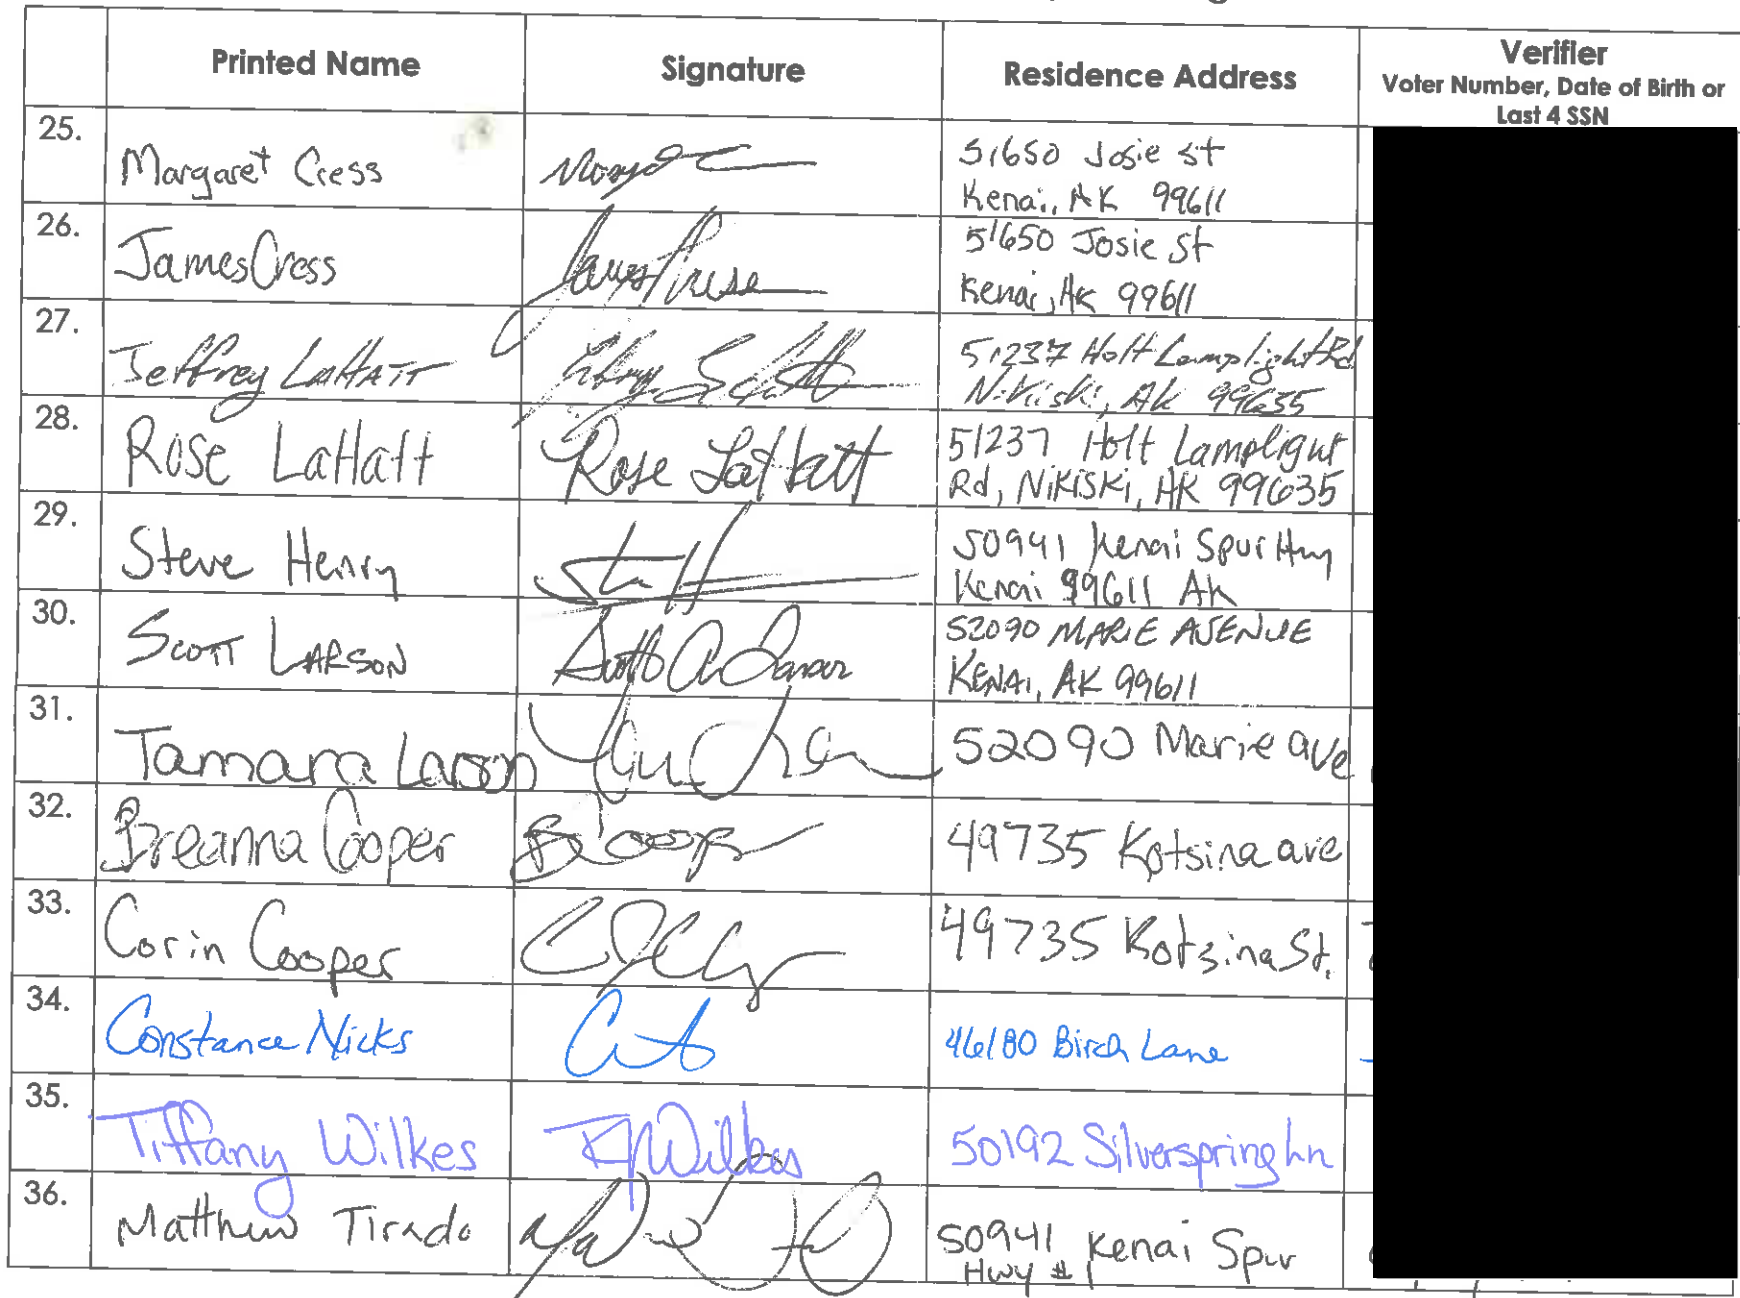 Printed Name
Signature
Residence Address
Verifier
Voter Number, Date of Birth or
Last 4 SSN
25.
Margaret Cress
51650 Josie St
Kenai, AK 99611
26.
James Cress
51650 Josie St
Kenai, AK 99611
27.
Jeffrey LaHatt
51237 Holt Lamplight Rd
Nikiski, AK
28.
Rose LaHatt
Rose LaHatt
51237 Holt Lamplight
Rd, Nikiski, AK 99635
29.
Steve Henry
50941 Kenai Spur Hwy
Kenai 99611 AK
30.
Scott LARSON
Scott A Larson
52090 MARIE AVENUE
KENAI, AK 99611
31.
Tamara Larson
52090 Marie ave
32.
Breanna Cooper
B Cooper
49735 Kotsina ave
33.
Corin Cooper
49735 Kotsina St.
34.
Constance Nicks
46180 Birch Lane
35.
Tiffany Wilkes
Wilkes
50192 Silverspring Ln
36.
Matthew Tirado
50941 Kenai Spur
Hwy #1